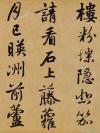 樓粉堞隱悲笳
請看石上藤蘿
月已暎洲前蘆